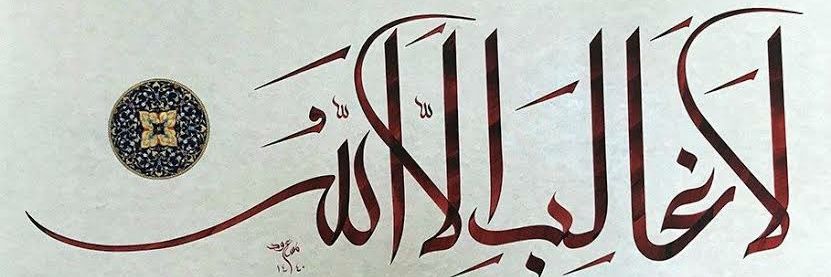 لَا غَالِبَ اِلَّا اللّٰهُ
١٤٤٠